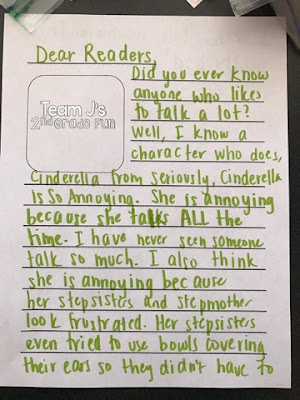 Dear Readers,
Did you ever know
anyone who likes
Team J's
2nd Grade Fun
to talk a lot?
Well, I know a
character who does,
Cinderella from, seriously, Cinderella
is So Annoying. She is annoying
because she talks ALL the
time. I have never seen someone
talk so much. I also think
she is annoying because
her stepsisters and stepmother
look frustrated. Her stepsisters
even tried to use bowls covering
their ears so they didn't have to